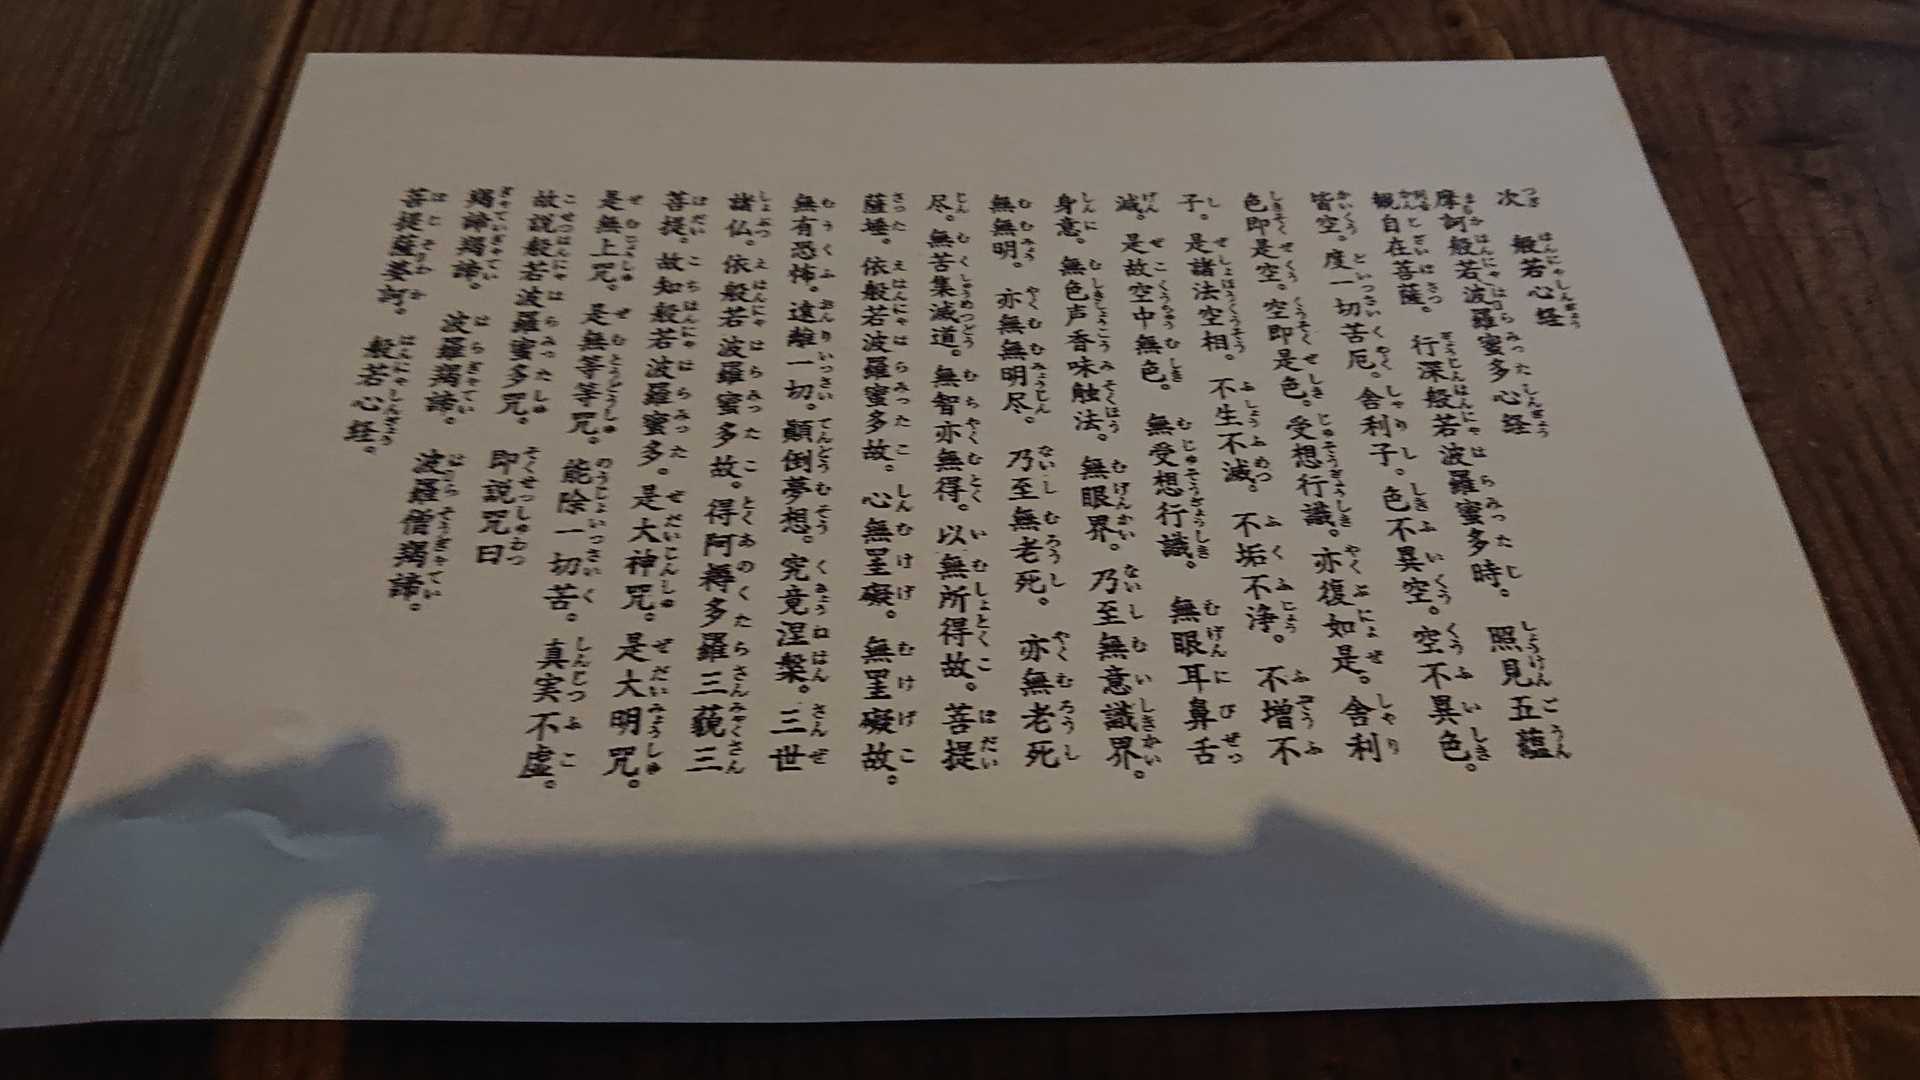 次　般若心経
摩訶般若波羅蜜多心経
観自在菩薩。　行深般若波羅蜜多時。　照見五蘊
皆空。度一切苦厄。舎利子。色不異空。空不異色。
色即是空。空即是色。受想行識。亦復如是。舎利
子。是諸法空相。不生不滅。不垢不浄。不増不
減。是故空中無色。　無受想行識。　無眼耳鼻舌
身意。無色声香味触法。無眼界。乃至無意識界。
無無明。　亦無無明尽。　乃至無老死。　亦無老死
尽。無苦集滅道。無智亦無得。以無所得故。菩提
薩埵。依般若波羅蜜多故。心無罣礙。無罣礙故。
無有恐怖。遠離一切。顛倒夢想。究竟涅槃。三世
諸仏。依般若波羅蜜多故。得阿耨多羅三藐三
菩提。故知般若波羅蜜多。是大神咒。是大明咒。
是無上咒。是無等等咒。能除一切苦。真実不虚。
故説般若波羅蜜多咒。　即説咒曰
羯諦羯諦。　波羅羯諦。　波羅僧羯諦。
菩提薩婆訶。　般若心経。